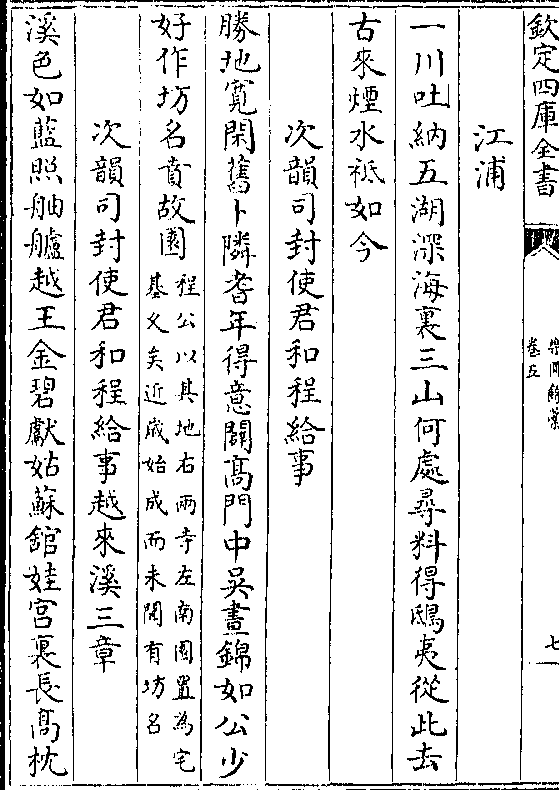 欽定四庫全書
樂圃餘藁
卷五
七
江浦
一川吐納五湖深海裏三山何處尋料得鴟夷從此去
古來煙水祗如今
次韻司封使君和程給事
勝地寛閑舊卜隣耆年得意闢髙門中吳晝錦如公少
好作坊名賁故園
程公以其地右兩寺左南園置為宅
基久矣近歲始成而未聞有坊名
次韻司封使君和程給事越來溪三章
溪色如藍照舳艫越王金碧獻姑蘇舘娃宫裏長髙枕